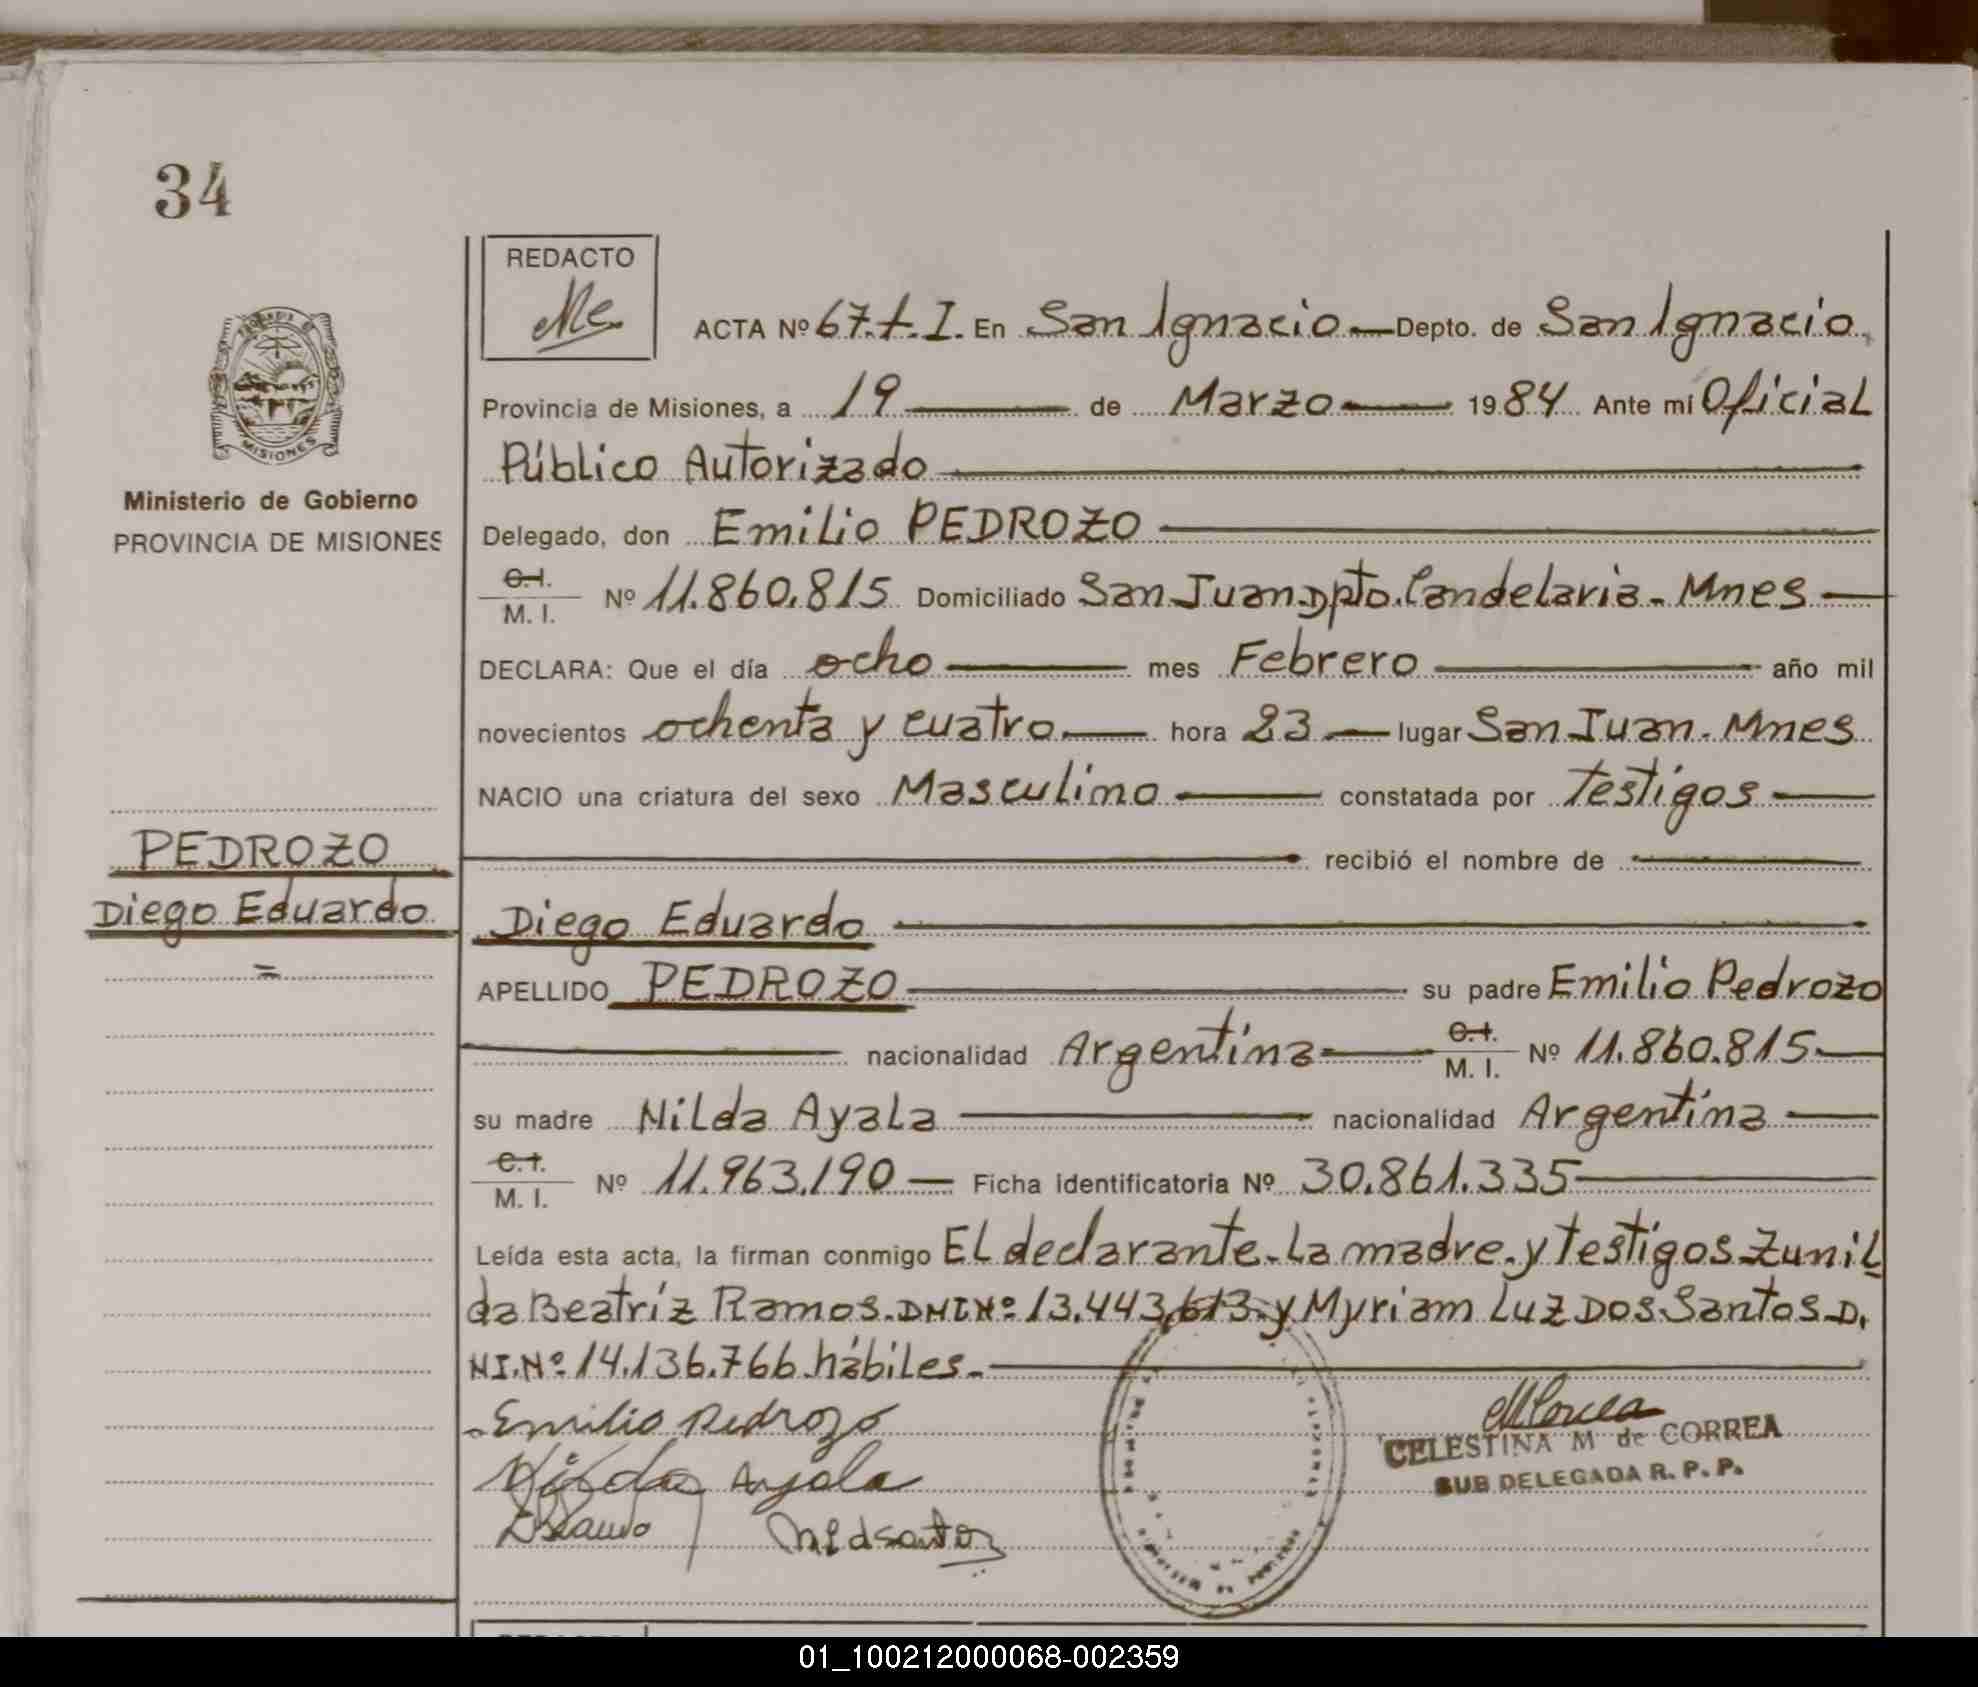 34
REDACTO
ACTA Nº 67.t.I. En San Ignacio Depto. de San Ignacio
Provincia de Misiones, a 19 de Marzo 1984 Ante mi Oficial
Público Autorizado
MISIONES
Ministerio de Gobierno
PROVINCIA DE MISIONES
Delegado, don Emilio PEDROZO
C.I.
M. I. Nº 11.860.815 Domiciliado San Juan Dpto. Candelaria - Mnes
DECLARA: Que el día ocho mes Febrero año mil
novecientos ochenta y cuatro hora 23 lugar San Juan. Mnes
NACIO una criatura del sexo Masculino constatada por testigos
PEDROZO
recibió el nombre de
Diego Eduardo
Diego Eduardo
=
APELLIDO PEDROZO su padre Emilio Pedrozo
nacionalidad Argentina C.I.
M. I. Nº 11.860.815
su madre Nilda Ayala nacionalidad Argentina
C.I.
M. I. Nº 11.963.190 Ficha identificatoria Nº 30.861.335
Leída esta acta, la firman conmigo El declarante. La madre. y testigos Zunil
da Beatríz Ramos. DNI Nº 13.443.613. y Myriam Luz Dos Santos D.
NI. Nº 14.136.766 hábiles.
Emilio Pedrozo
Nilda Ayala
CELESTINA M de CORREA
SUB DELEGADA R. P. P.
01_100212000068-002359